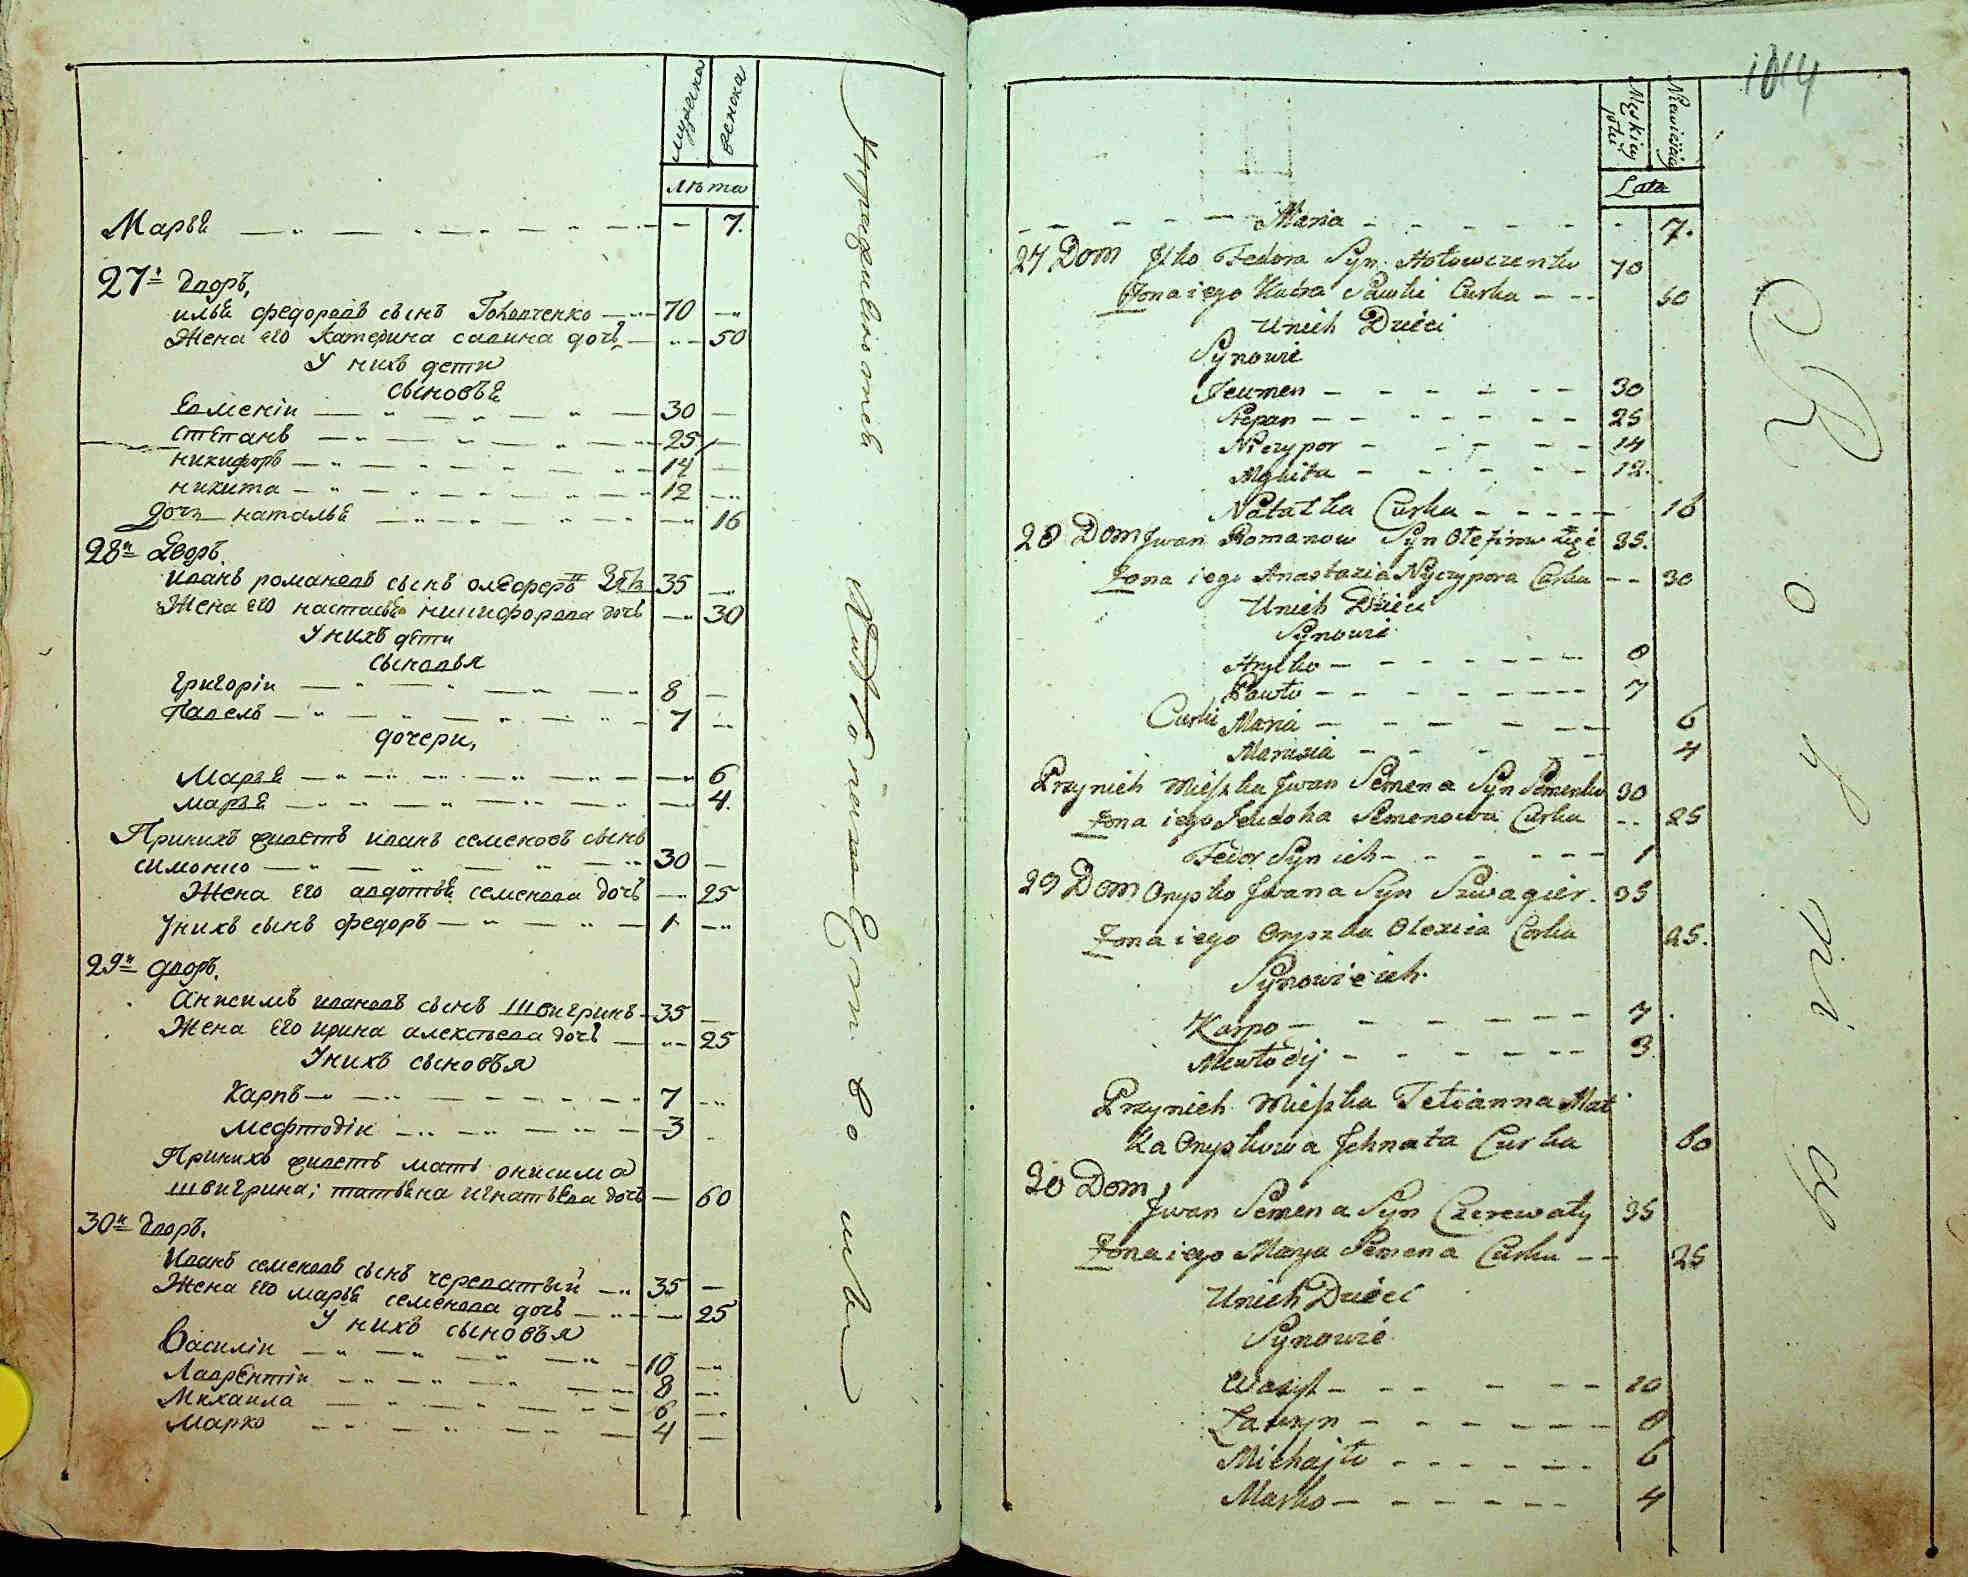 мужеска
женска
лѣта
Марья 7.
27й дворъ,
илья федоровъ сынъ Головченко 70
Жена его катерина савина дочь 50
У нихъ дети
сыновья
Евменіи 30
степанъ 25
никифоръ 14
никита 12
дочь наталья 16
28й дворъ.
иванъ романовъ сынъ олеферъ 35
Жена его настасья никифорова дочь 30
У нихъ дети
сыновья
григоріи 8
Павелъ 7
дочери,
Марья 6
марья 4.
При нихъ живетъ иванъ семеновъ сынъ
симонко 30
Жена его авдотья семенова дочь 25
У нихъ сынъ федоръ 1
29й дворъ.
Анисимъ ивановъ сынъ швигринъ 35
Жена его ирина алексѣева дочь 25
У нихъ сыновья
Карпъ 7
Мефтодіи 3
При нихъ живетъ мать онисима
швигрина; татьяна игнатьева дочь 60
30й дворъ.
Иванъ семеновъ сынъ череватый 35
Жена его марья семенова дочь 25
У нихъ сыновья
Василіи 10
Лаврентіи 8
Михаила 6
Марко 4
1014
Męskiey płci
Niewieściey
Lata
Maria 7.
27 Dom Ilko Fedora Syn Hołowczenko 70
Żona iego Katra Sawki Curka 50
U nich Dzieci
Synowie
Jeumen 30
Stepan 25
Niczypor 14
Mykita 12.
Natalka Curka 16
28 Dom Jwan Romanow Syn Olefirow 35.
Żona iego Anastazia Nyczypora Curka 30
U nich Dzieci
Synowie
Hryćko 8
Pawło 7
Curki Maria 6
Marusia 4
Przy nich Mieszka Jwan Semena Syn Semenko 30
Żona iego Jeudoka Semenowa Curka 25
Fedor Syn ich 1
29 Dom Onysko Jwana Syn Szwagier. 35
Żona iego Oryszka Olexieia Curka 25.
Synowie ich.
Karpo 7
Meułodij 3
Przy nich Mieszka Tetianna Mat
ka Onyskowa Jchnata Curka 60
30 Dom
Jwan Semena Syn Czerewaty 35
Żona iego Marya Semena Curka 25
U nich Dzieci
Synowie
Wasyl 10
Ławryn 8
Michajło 6
Marko 4